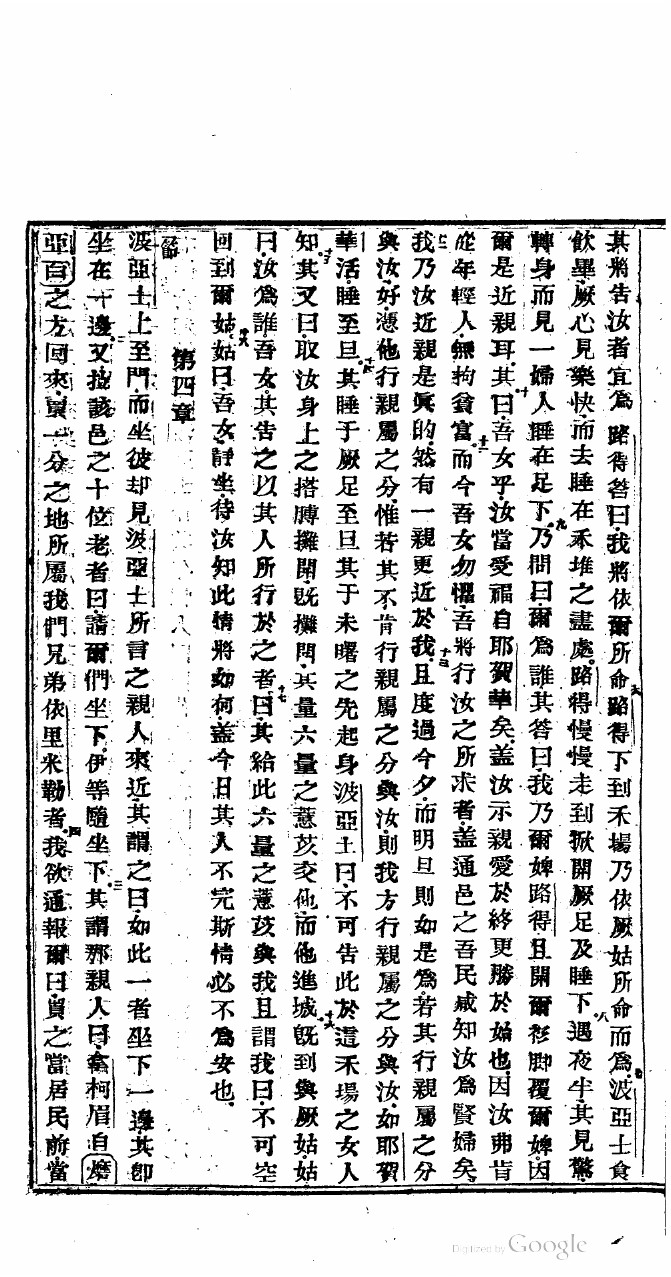 其將告汝者宜爲路得答曰我將依爾所命六路得下到禾場乃依厥姑所命而爲七波亞士食
飲畢厥心見樂快而去睡在禾堆之盡處路得慢慢走到掀開厥足及睡下八遇夜半其見驚
轉身而見一婦人睡在足下九乃問曰爾爲誰其答曰我乃爾婢路得且開爾衫脚覆爾婢因
爾是近親耳其十曰吾女乎汝當受福自耶賀華矣盖汝示親愛於終更勝於始也因汝弗肯
從年輕人無拘貧富十一而今吾女勿懼吾將行汝之所求者盖通邑之吾民咸知汝爲賢婦矣
十二我乃汝近親是眞的然有一親更近於我十三且度過今夕而明旦則如是爲若其行親屬之分
與汝好憑他行親屬之分惟若其不肯行親屬之分與汝則我方行親屬之分與汝如耶賀
華活睡至旦十四其睡于厥足至旦其于未曙之先起身波亞士曰不可告此於這禾場之女人
知十五其又曰取汝身上之搭膊攤開既攤開其量六量之薏苡交他而他進城十六既到與厥姑姑
曰汝爲誰吾女其告之以其人所行於之者十七曰其給此六量之薏苡與我且謂我曰不可空
回到爾姑十八姑曰吾女靜坐待汝知此情將如何盖今日其人不完斯情必不爲安也
第四章
節
波亞士上至門而坐彼却見波亞士所言之親人來近其謂之曰如此一者坐下一邊其卽
坐在一邊二又㧞該邑之十位老者曰請爾們坐下伊等隨坐下三其謂那親人曰拿柯眉自磨
亞百之方回來賣一分之地所屬我們兄弟依里米勒者四我欲通報爾曰買之當居民前當
Digitized by Google